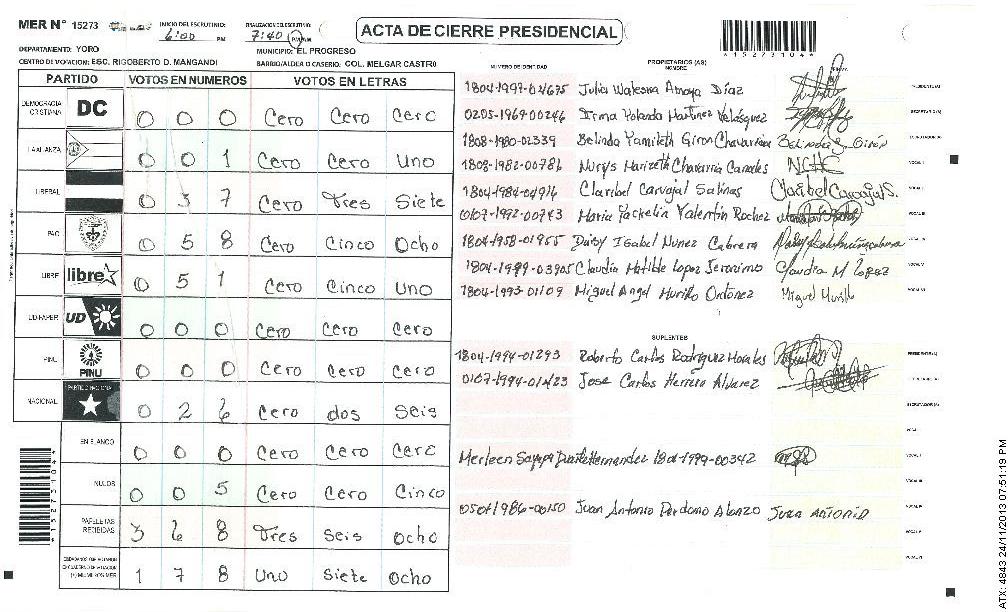 MER N° 15273
INICIO DEL ESCRUTINIO:
6:00 PM
FINALIZACION DEL ESCRUTINIO:
7:40 PM
ACTA DE CIERRE PRESIDENCIAL
*15273104*
DEPARTAMENTO: YORO
MUNICIPIO: EL PROGRESO
CENTRO DE VOTACION: ESC. RIGOBERTO D. MANGANDI
BARRIO/ALDEA O CASERIO: COL. MELGAR CASTRO
PARTIDO VOTOS EN NUMEROS VOTOS EN LETRAS
DEMOCRACIA CRISTIANA DC 0 0 0 Cero Cero Cero
LA ALIANZA 0 0 1 Cero Cero Uno
LIBERAL 0 3 7 Cero Tres Siete
PAC 0 5 8 Cero Cinco Ocho
LIBRE libre 0 5 1 Cero Cinco Uno
UD-FAPER UD 0 0 0 Cero Cero Cero
PINU PINU 0 0 0 Cero Cero Cero
NACIONAL PARTIDO NACIONAL 0 2 6 Cero dos Seis
EN BLANCO 0 0 0 Cero Cero Cero
NULOS 0 0 5 Cero Cero Cinco
PAPELETAS RECIBIDAS 3 6 8 Tres Seis Ocho
1 7 8 Uno Siete Ocho
*15273104*
NUMERO DE IDENTIDAD
PROPIETARIOS (AS)
NOMBRE
FIRMA
1804-1997-04675 Julia Waleska Amaya Díaz PRESIDENTE(A)
0205-1969-00246 Irma Yolanda Martinez Velásquez SECRETARIO(A)
1808-1980-02339 Belinda Yamileth Giron Chavarria Belinda Y Girón ESCRUTADOR(A)
1808-1982-00786 Nurys Marizeth Chavarria Canales NCHC VOCAL I
1804-1984-04916 Claribel Carvajal Salinas Claribel Carvajal S. VOCAL II
0107-1992-00743 Maria Jackelin Valentin Rochez VOCAL III
1804-1958-01955 Daisy Isabel Nunez Cabrera VOCAL IV
1804-1999-03905 Claudia Matilde Lopez Jeronimo Claudia M López VOCAL V
1804-1993-01109 Miguel Angel Murillo Ordonez Miguel Murillo VOCAL VI
SUPLENTES
1804-1994-01293 Roberto Carlos Rodriguez Morales PRESIDENTE(A)
0107-1994-01423 Jose Carlos Herrera Alvarez SECRETARIO(A)
ESCRUTADOR(A)
VOCAL I
Merleen Duarte Hernandez 1804-1999-00342 VOCAL II
VOCAL III
0501-1986-00150 Juan Antonio Perdomo Alonzo Juan Antonio VOCAL IV
VOCAL V
VOCAL VI
ATX: 4843 24/11/2013 07:51:19 PM